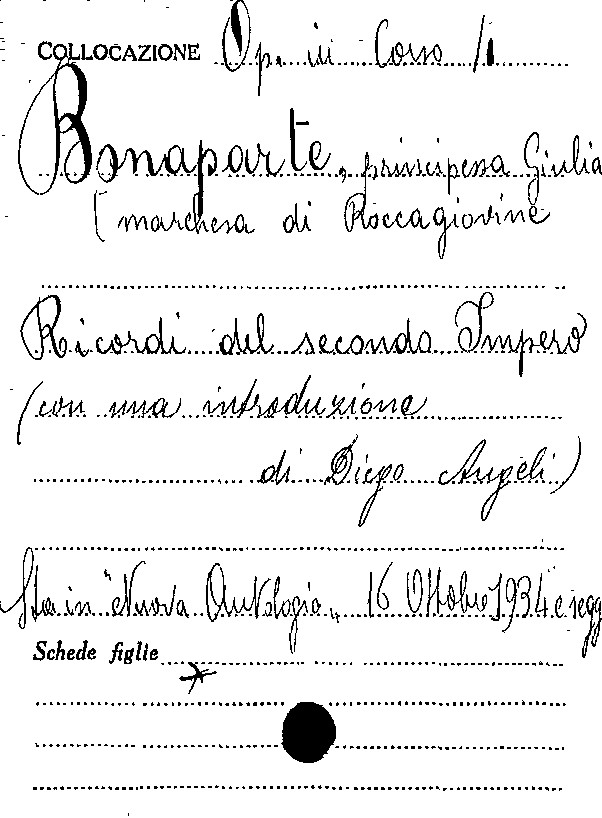 COLLOCAZIONE Op. in Corso /1
Bonaparte, principessa Giulia
(marchesa di Roccagiovine
Ricordi del secondo Impero
(con una introduzione
di Diego Angeli)
Sta in "Nuova Antologia" 16 Ottobre 1934 e segg
Schede figlie